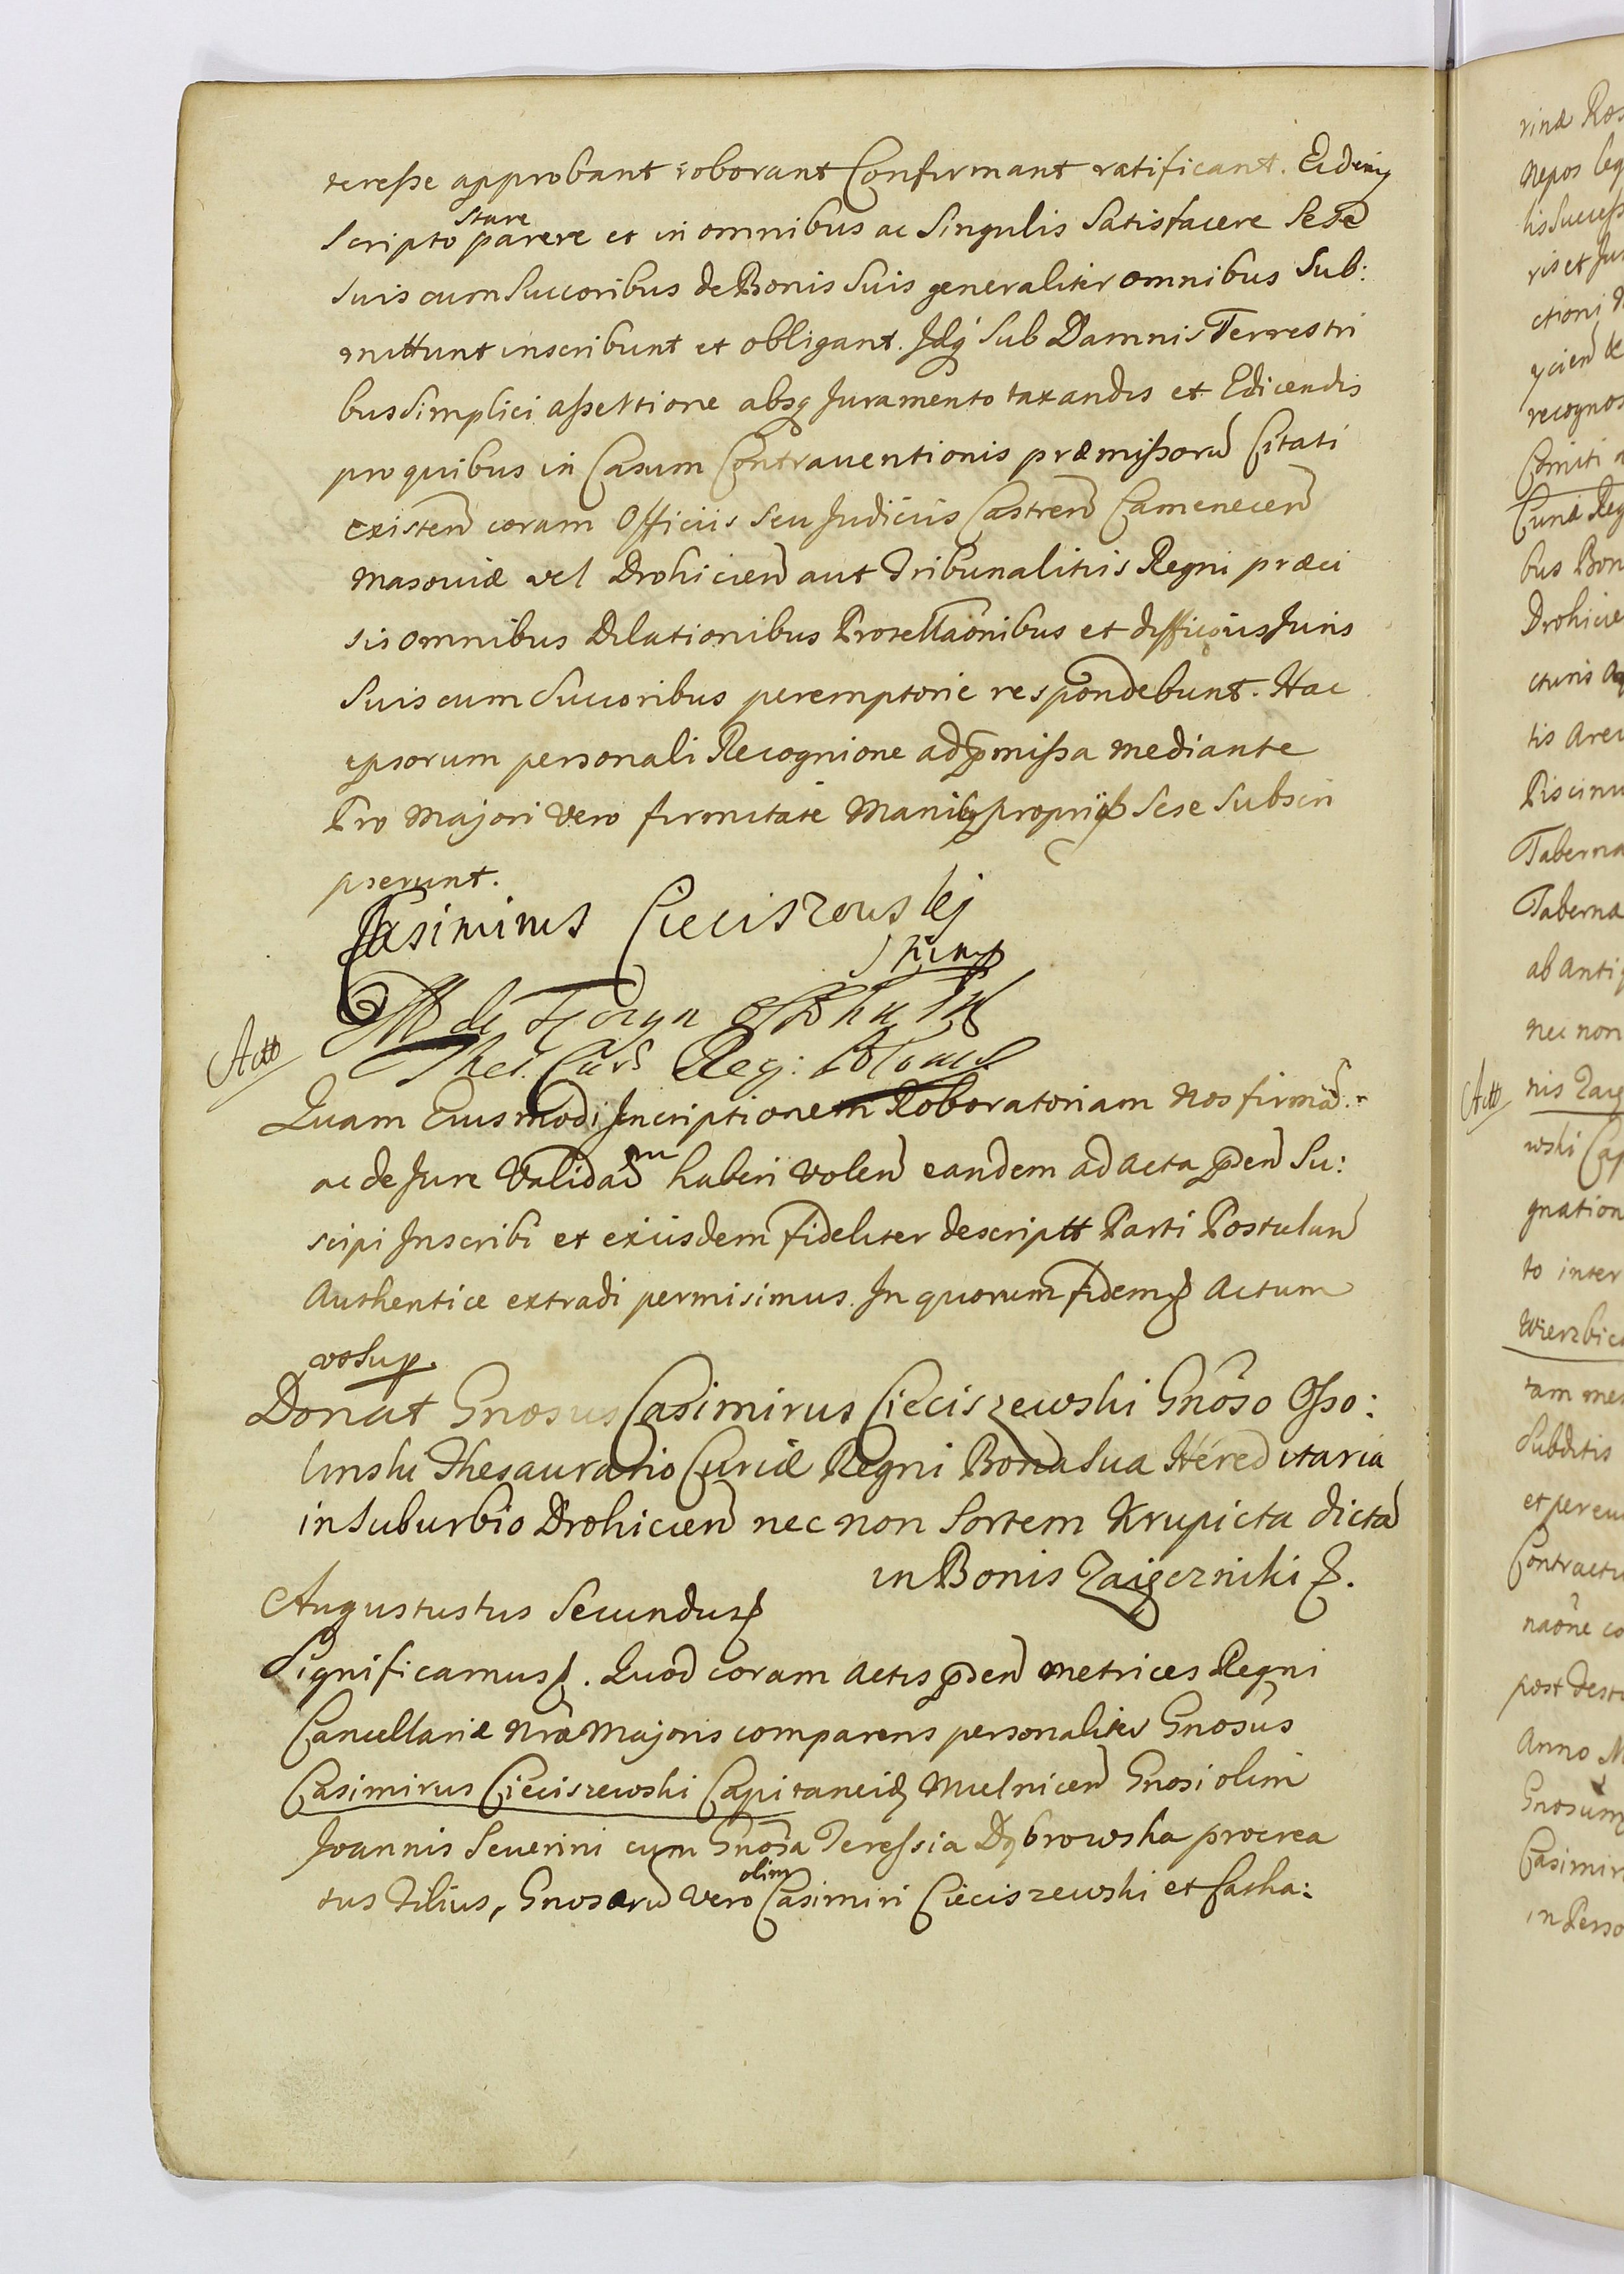 teresse approbant roborant Confirmant ratificant. Eidemq
Scripto stare parere et in omnibus ac Singulis Satisfacere Sese
Suis cum Succoribus de Bonis Suis generaliter omnibus Sub:
mittunt inscribunt et obligant. Idq Sub Damnis Terrestri
bus Simplici assertione absq Juramento taxandis et Edicendis
pro quibus in Casum Contrauentionis præmissorũ Citati
existeñ coram Officiis Seu Judiciis Castreñ Cameneceñ
Masouiæ vel Drohicieñ aut Tribunalitiis Regni præci
sis omnibus Dilationibus Protestaõnibus et diffugiis Juris
Suis cum Succoribus peremptorie respondebunt. Hac
ipsorum personali Recognione ad pmissa mediante
Pro Majori Vero firmitate Manibq propriis Sese Subscri
pserunt.
Casimirus Cieciszouskj
mp
Thes. Cur Reg:
Actt
Quam Eiusmodi Inscriptionem Roboratoriam Nos firmã
ac de Jure Validam haberi Voleñ eandem ad Acta pñseñ Su:
scipi Inscribi et eiusdem fideliter descriptt Parti Postulañ
Authentice extradi permisimus. In quorum fidem Actum
vtsup.
Donat Gnosus Casimirus Cieciszewski Gnõso Osso:
linski Thesaurario Curiæ Regni Bona Sua Hereditaria
in Suburbio Drohicieñ nec non Sortem Krupicta dictã
in Bonis Zaięczniki
Augustustus Secundus
Significamus. Quod coram Actis pñseñ Metrices Regni
Cancellariæ Nræ Majoris comparens personaliter Gnosus
Casimirus Cieciszewski Capitaneid Mielniceñ Gnosi olim
Joannis Seuerini cum Gnosa Teressia Dąbrowska procrea
tus Filius, Gnosorũ Vero olim Casimiri Cieciszewski et Catha:
Nepos
recognos
Comiti
bus Bon
Taberna
Tabernæ
ab Anti
nec non
Actt
to inter
Wierzbic
Subditis
Contractu
Anno
Gnosum
Casimir
in Perso